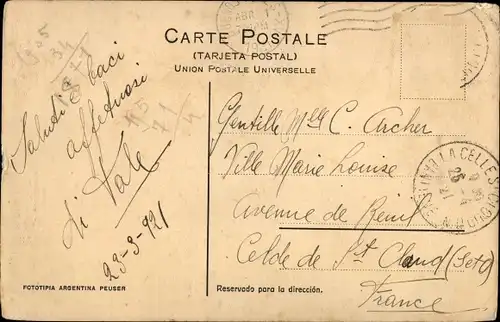 CARTE POSTALE
(TARJETA POSTAL)
UNION POSTALE UNIVERSELLE
Saluti e baci
affettuosi
di Vale
23-3-921
Gentille Mlle C. Archer
Ville Marie Louise
Avenue de Rueil
Celde de St Claud (Set O)
France
LA CELLE S
FOTOTIPIA ARGENTINA PEUSER
Reservado para la dirección.